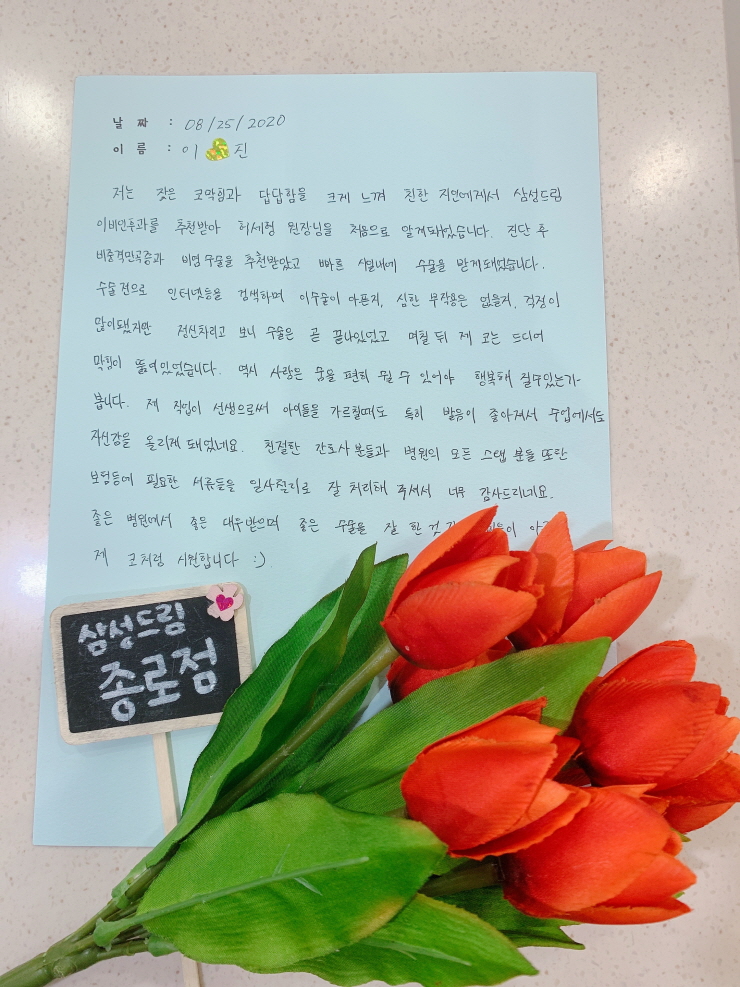 날 짜 : 08/25/2020
이 름 : 이 진
저는 잦은 코막힘과 답답함을 크게 느껴 친한 지인에게서 삼성드림
이비인후과를 추천받아 허세형 원장님을 처음으로 알게돼었습니다. 진단 후
비중격만곡증과 비염 수술을 추천받았고 빠른 시일내에 수술을 받게돼었습니다.
수술 전으로 인터넷등을 검색하며 이수술이 아픈지, 심한 부작용은 없을지, 걱정이
많이됐지만 정신차리고 보니 수술은 곧 끝나있었고 며칠 뒤 제 코는 드디어
막힘이 뚫여있었습니다. 역시 사람은 숨을 편히 쉴 수 있어야 행복해 질수있는가
봅니다. 제 직업이 선생으로써 아이들을 가르칠때도 특히 발음이 좋아져서 수업에서도
자신감을 올리게 돼었네요. 친절한 간호사 분들과 병원의 모든 스탭 분들 또한
보험등에 필요한 서류들을 일사천리로 잘 처리해 주셔서 너무 감사드리네요.
좋은 병원에서 좋은 대우받으며 좋은 수술을 잘 한 것
제 코처럼 시원합니다 :)
삼성드림
종로점